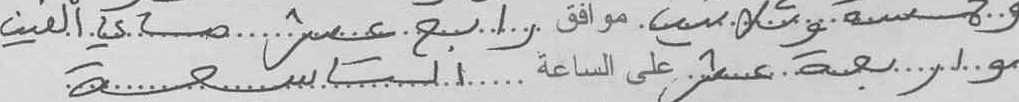 و خمسة وثلاثين موافق رابع عشر ماي ألفين
و أربعة عشر على الساعة التاسعة